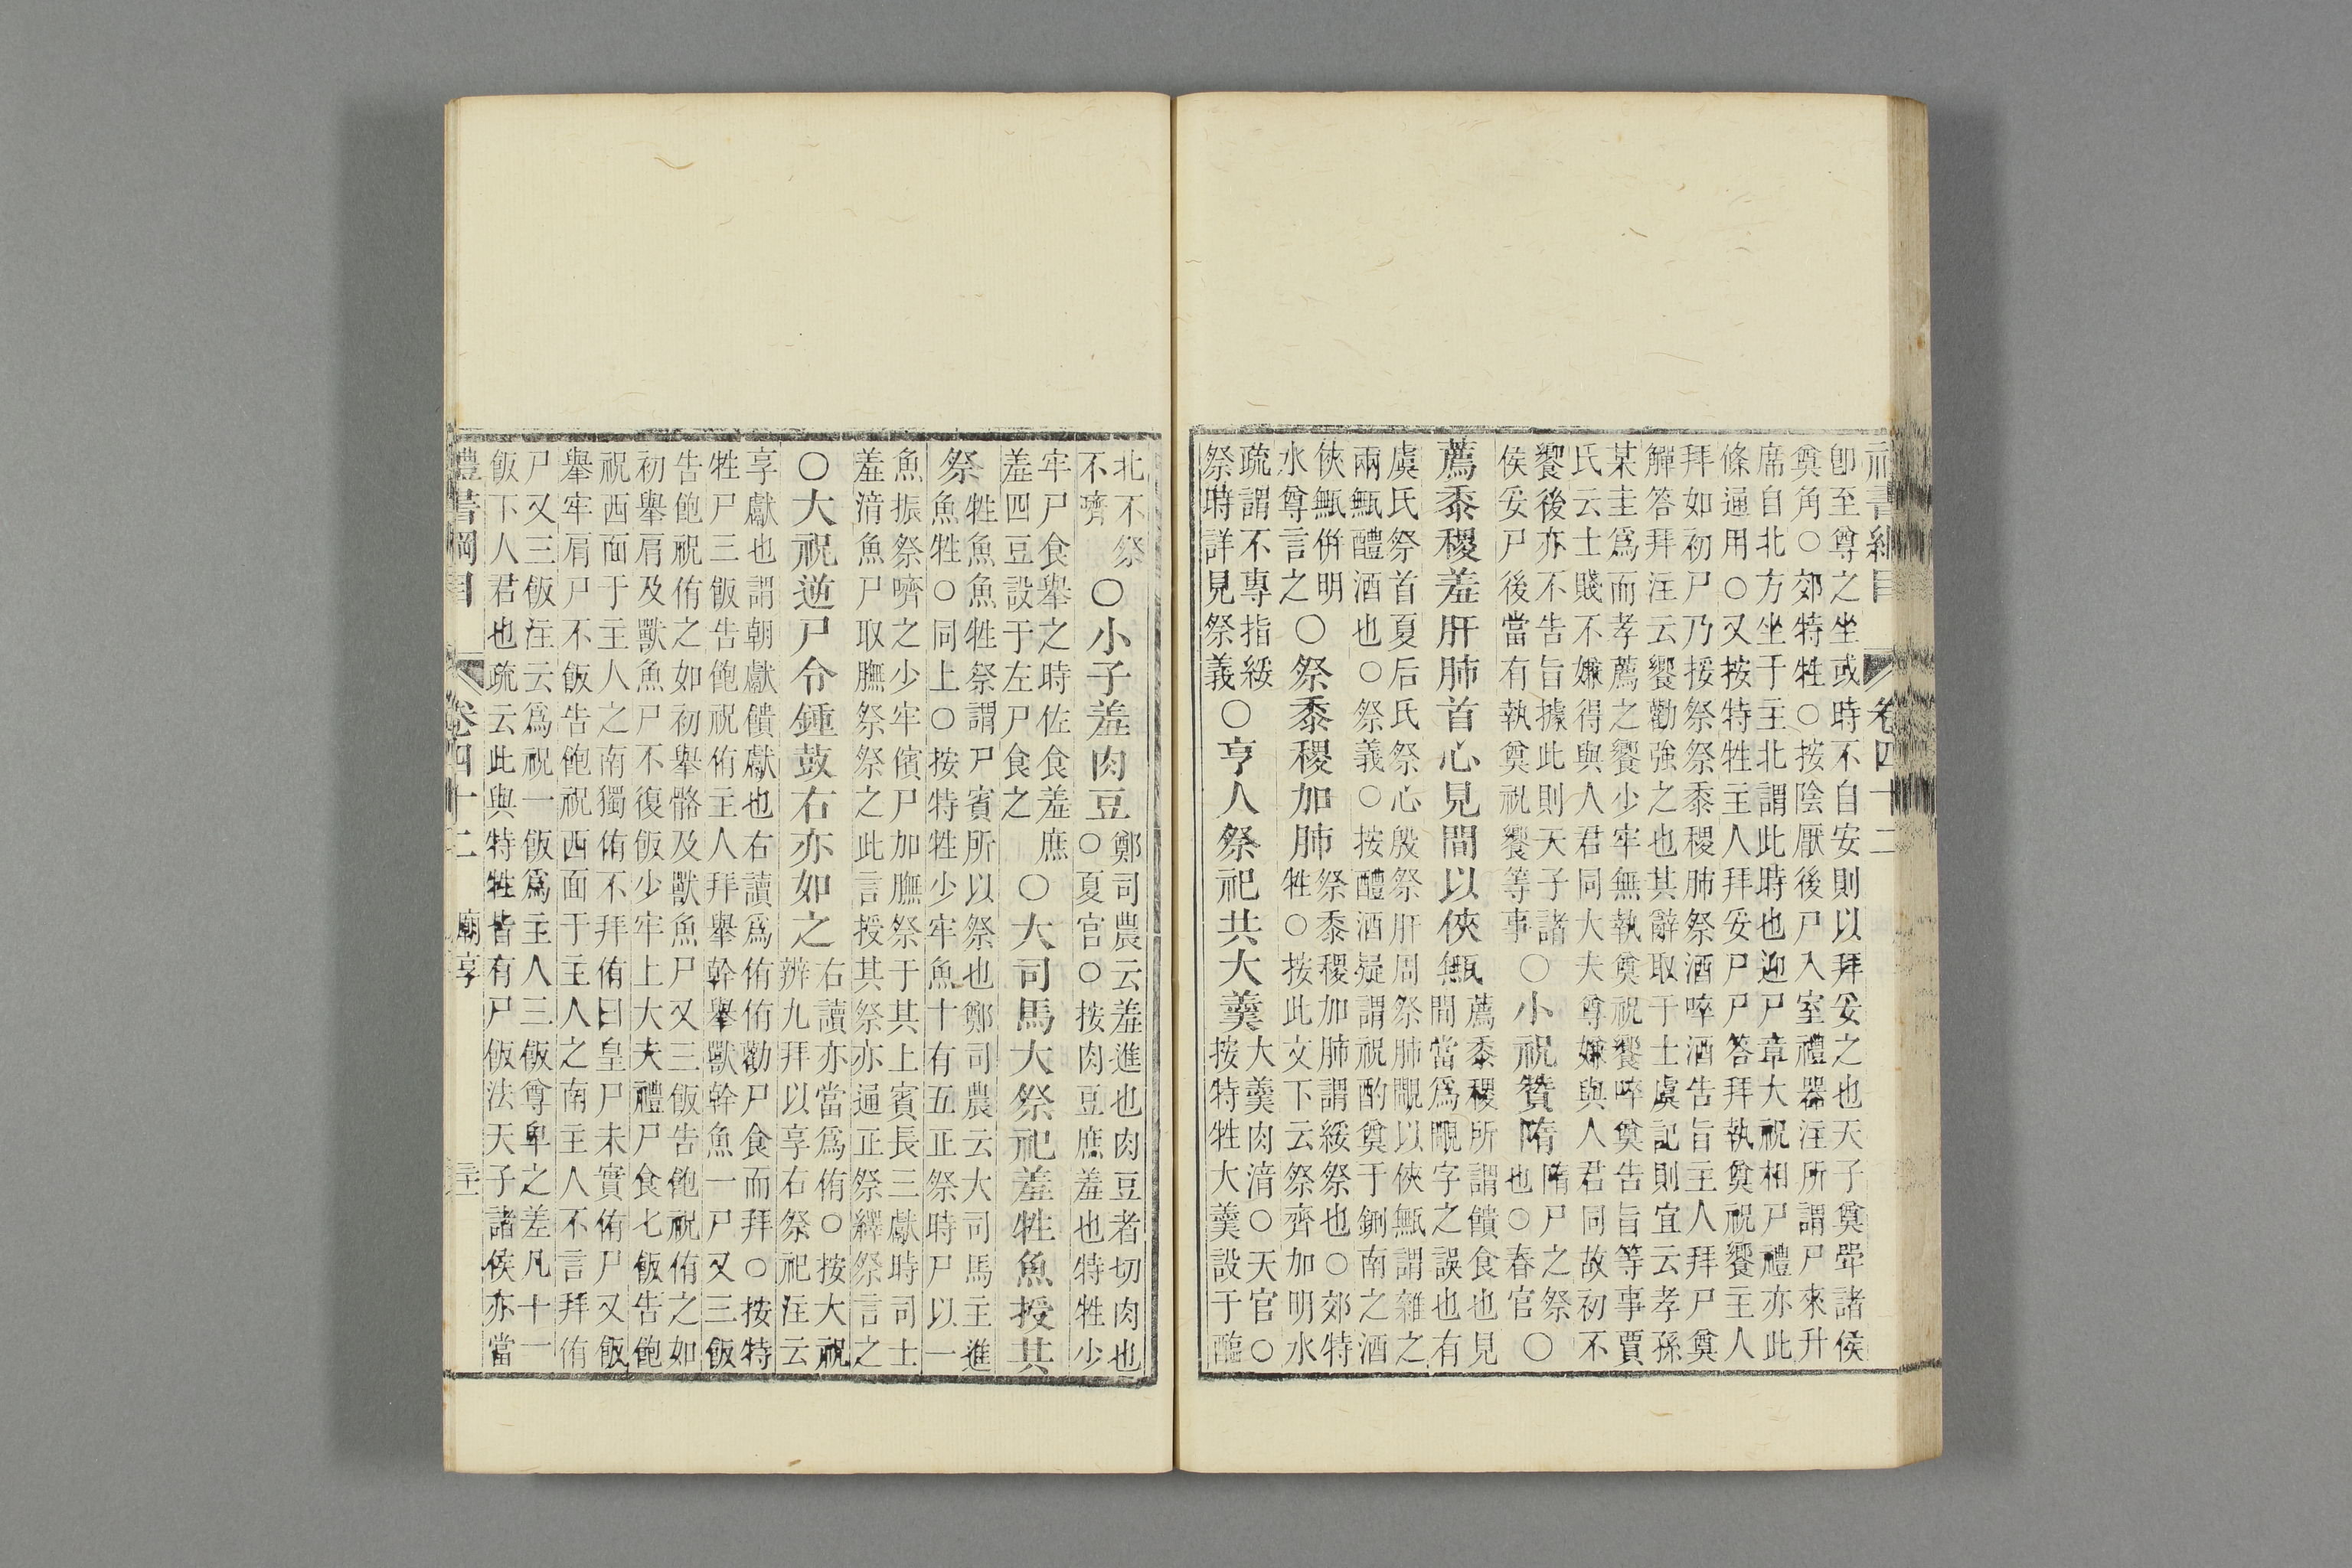 禮書綱目　卷四十二
卽至尊之坐或時不自安則以拜妥之也天子奠斝諸侯
奠角○郊特牲○按陰厭後尸入室禮器注所謂尸來升
席自北方坐于主北謂此時也迎尸章大祝相尸禮亦此
條通用○又按特牲主人拜妥尸尸答拜執奠祝饗主人
拜如初尸乃挼祭祭黍稷肺祭酒啐酒告旨主人拜尸奠
觶答拜注云饗勸強之也其辭取于士虞記則宜云孝孫
某圭爲而孝薦之饗少牢無執奠祝饗啐奠告旨等事賈
氏云士賤不嫌得與人君同大夫尊嫌與人君同故初不
饗後亦不告旨據此則天子諸
侯妥尸後當有執奠祝饗等事
○小祝贊隋
隋尸之祭
也○春官
○
薦黍稷羞肝肺首心見間以俠甒
薦黍稷所謂饋食也見
間當爲覵字之誤也有
虞氏祭首夏后氏祭心殷祭肝周祭肺覵以俠甒謂雜之
兩甒醴酒也○祭義○按醴酒疑謂祝酌奠于鉶南之酒
俠甒倂明
水尊言之
○祭黍稷加肺
祭黍稷加肺謂綏祭也○郊特
牲○按此文下云祭齊加明水
疏謂不專指綏
祭時詳見祭義
○亨人祭祀共大羹
大羹肉湆○天官○
按特牲大羹設于醢
北不祭
不嚌
○小子羞肉豆
鄭司農云羞進也肉豆者切肉也
○夏官○按肉豆庶羞也特牲少
牢尸食舉之時佐食羞庶
羞四豆設于左尸食之
○大司馬大祭祀羞牲魚授其
祭
牲魚魚牲祭謂尸賓所以祭也鄭司農云大司馬主進
魚牲○同上○按特牲少牢魚十有五正祭時尸以一
魚振祭嚌之少牢儐尸加膴祭于其上賓長三獻時司士
羞湆魚尸取膴祭祭之此言授其祭亦通正祭繹祭言之
○大祝逆尸令鍾鼓右亦如之
右讀亦當爲侑○按大祝
辨九拜以享右祭祀注云
享獻也謂朝獻饋獻也右讀爲侑侑勸尸食而拜○按特
牲尸三飯告飽祝侑主人拜舉幹舉獸幹魚一尸又三飯
告飽祝侑之如初舉骼及獸魚尸又三飯告飽祝侑之如
初舉肩及獸魚尸不復飯少牢上大夫禮尸食七飯告飽
祝西面于主人之南獨侑不拜侑曰皇尸未實侑尸又飯
舉牢肩尸不飯告飽祝西面于主人之南主人不言拜侑
尸又三飯注云爲祝一飯爲主人三飯尊卑之差凡十一
飯下人君也疏云此與特牲皆有尸飯法天子諸侯亦當
禮書綱目　卷四十二　廟享